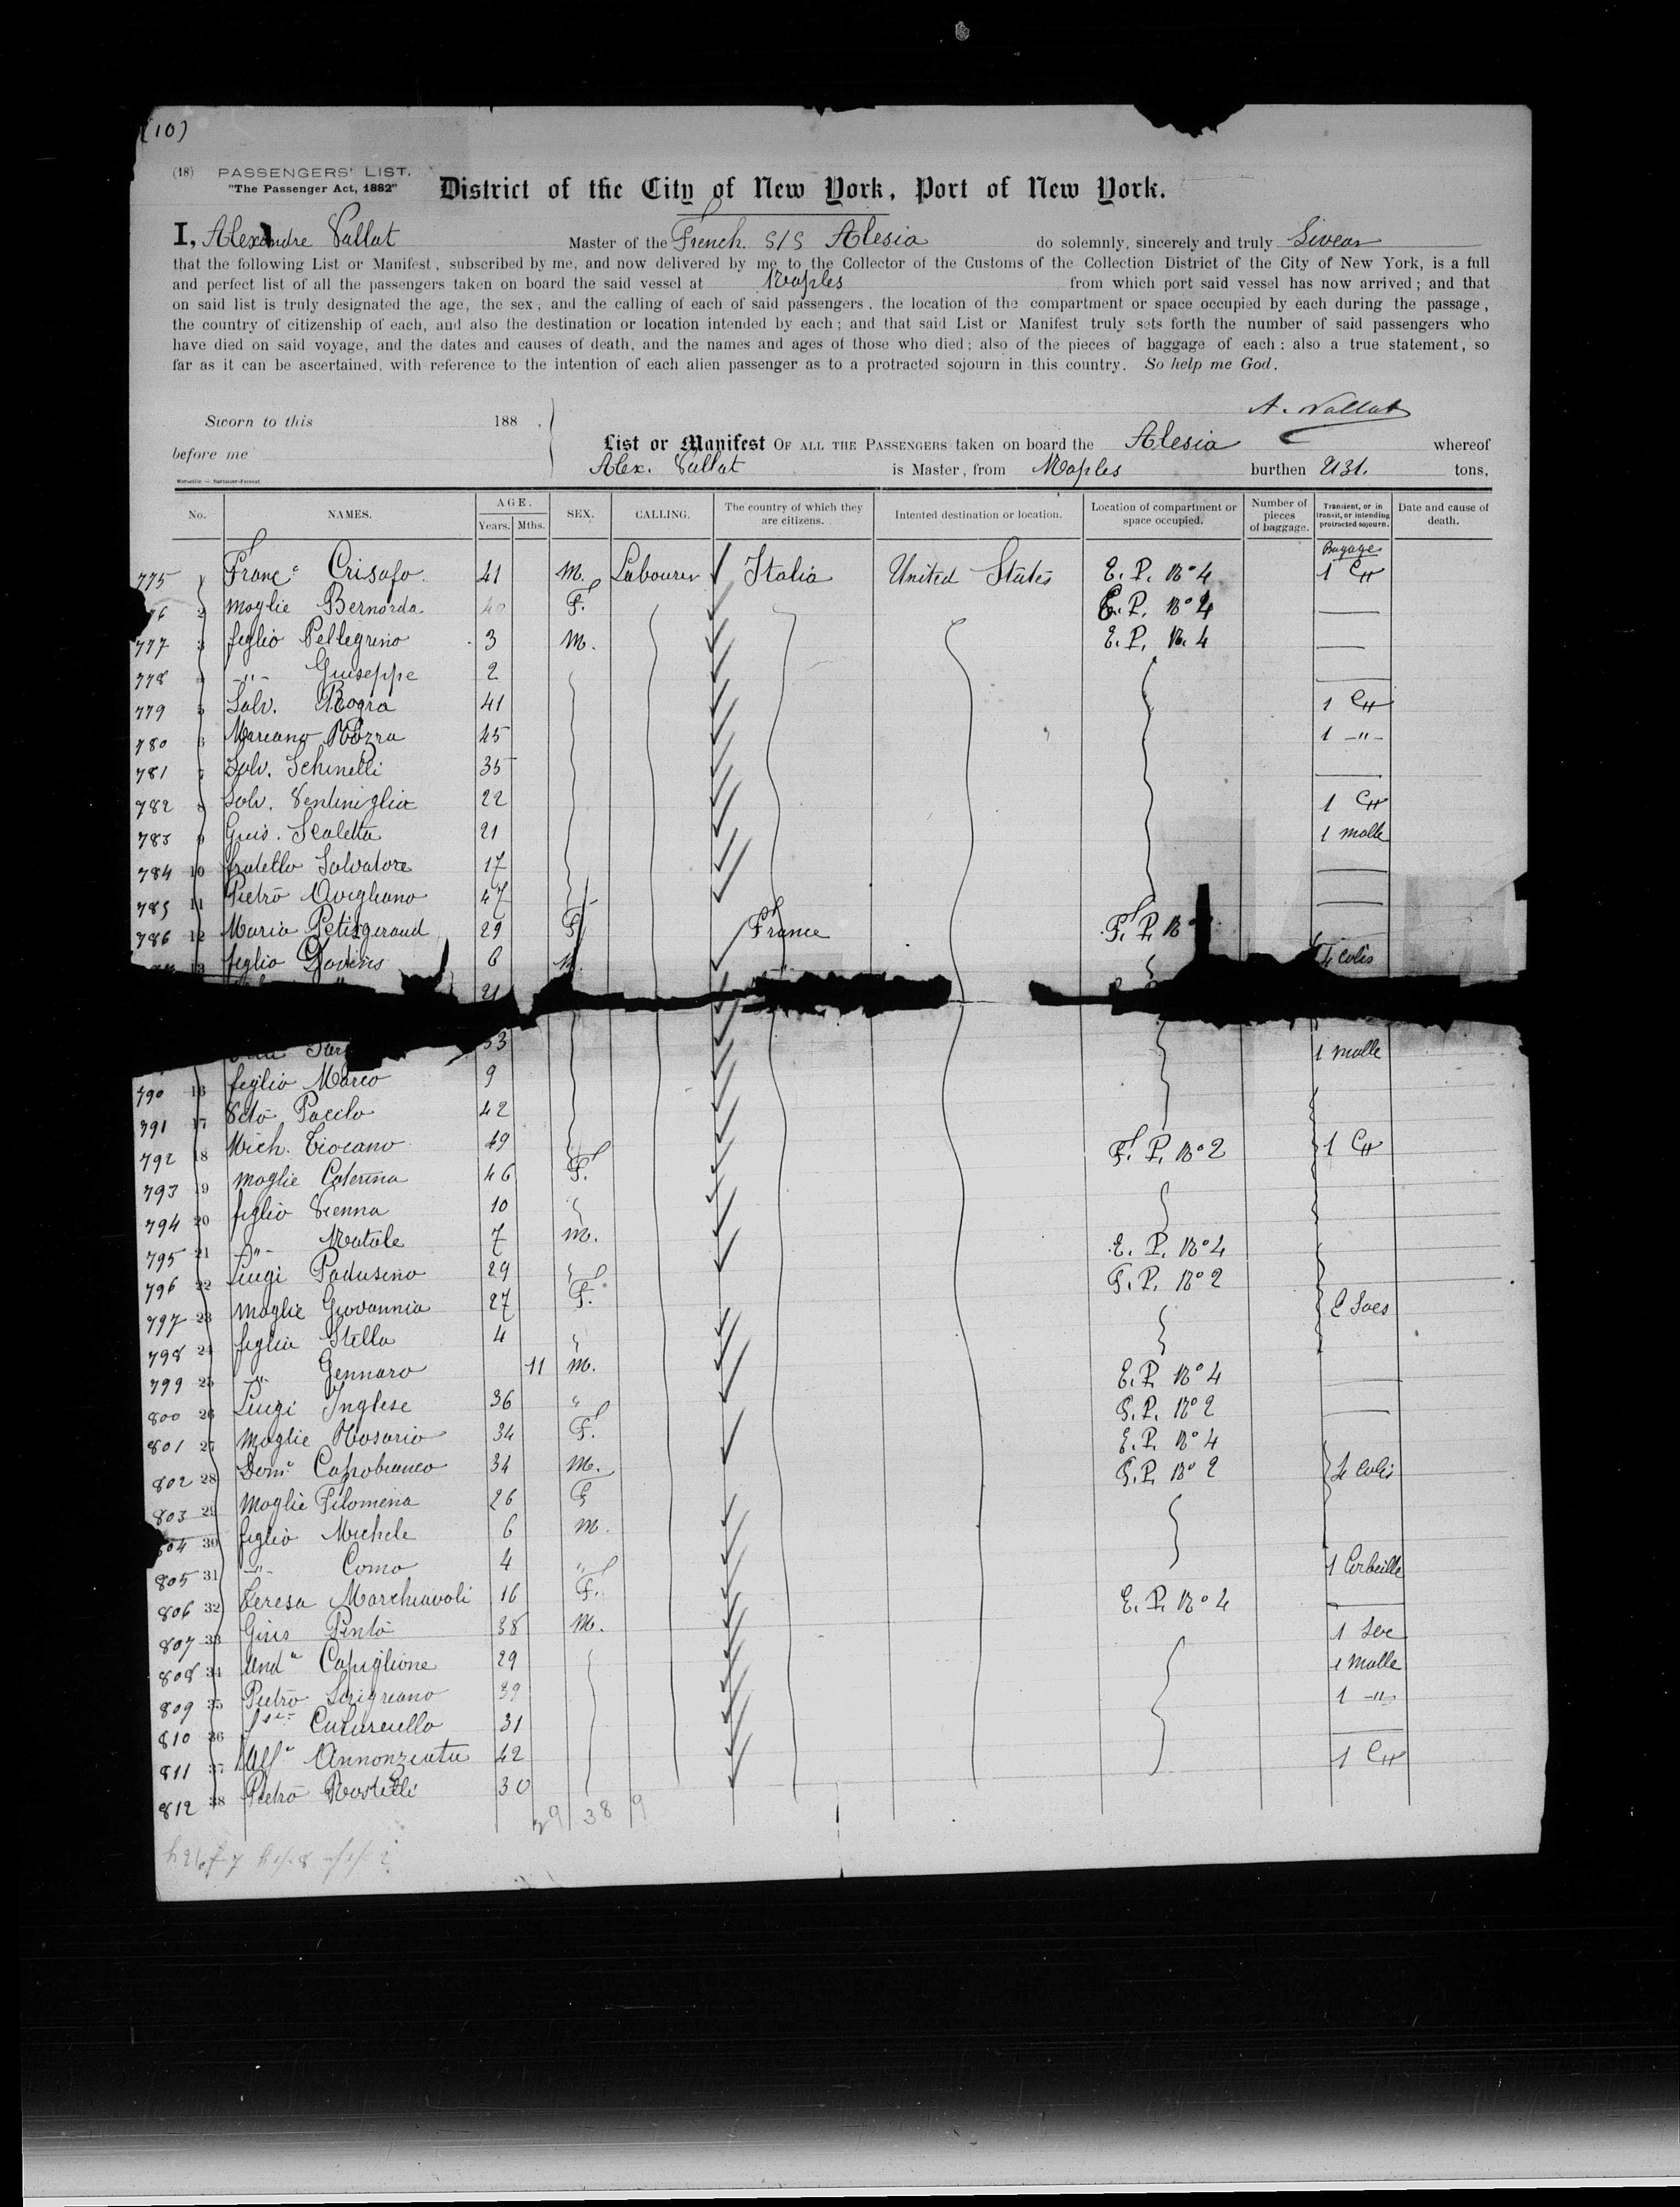 (10)
(18) PASSENGERS' LIST.
"The Passenger Act, 1882"
District of the City of New York, Port of New York.
I, Alexandre Vallat Master of the French S/S Alesia do solemnly, sincerely and truly Swear
that the following List or Manifest, subscribed by me, and now delivered by me to the Collector of the Customs of the Collection District of the City of New York, is a full
and perfect list of all the passengers taken on board the said vessel at Naples from which port said vessel has now arrived; and that
on said list is truly designated the age, the sex, and the calling of each of said passengers, the location of the compartment or space occupied by each during the passage,
the country of citizenship of each, and also the destination or location intended by each; and that said List or Manifest truly sets forth the number of said passengers who
have died on said voyage, and the dates and causes of death, and the names and ages of those who died; also of the pieces of baggage of each: also a true statement, so
far as it can be ascertained, with reference to the intention of each alien passenger as to a protracted sojourn in this country. So help me God.
A. Vallat
Sworn to this 188 .
before me
List or Manifest OF ALL THE PASSENGERS taken on board the Alesia whereof
Alex. Vallat is Master, from Naples burthen 2131. tons,
No. NAMES. AGE. Years. Mths. SEX. CALLING. The country of which they are citizens. Intented destination or location. Location of compartment or space occupied. Number of pieces of baggage. Transient, or in transit, or intending protracted sojourn. Date and cause of death.
Bagage
775 1 Franc° Crisafo 41 M. Labourer Italia United States E. P. No 4 1 CH
76 2 moglie Bernarda 40 F. E. P. No 4
777 3 figlio Pellegrino 3 M. E. P. No. 4
778 4 -"- Giuseppe 2
779 5 Salv. Rogra 41 1 CH
780 6 Mareano 45 1 -"-
781 7 Salv. Schinelli 35
782 8 Salv. Ventiniglia 22 1 CH
783 9 Gius. Scaletta 21 1 malle
784 10 fratello Salvatore 17
785 11 Pietro Avigliano 47
786 12 Maria Petitgeraud 29 F France F. P. No
13 figlio 6 M. 4 Colis
21
33 1 malle
790 16 figlio Marco 9
791 17 Vito Pacilo 42
792 18 Mich. Ciocano 49 F. P. No 2 1 CH
793 19 moglie Caterina 46 F.
794 20 figlio Vienna 10
795 21 -"- Natale 7 M. E. P. No 4
796 22 Luigi Paduseno 29 F. P. No 2
797 23 moglie Giovannia 27 F. 2 Sacs
798 24 figlia Stella 4
799 25 -"- Gennaro 11 M. E. P. No 4
800 26 Luigi Inglese 36 " F. P. No 2
801 27 moglie Rosario 34 F. E. P. No 4
802 28 Domo Capobianco 34 M. F. P. No 2 4 Colis
803 29 Moglie Filomena 26 F
804 30 figlio Michele 6 M.
805 31 -"- Como 4 " 1 Corbeille
806 32 Teresa Marchiavoli 16 F. E. P. No 4
807 33 Gius Pinto 38 M. 1 Sac
808 34 Anda Capiglione 29 1 Malle
809 35 Pietro Scigreano 39 1 -"-
810 36 Cuturcullo 31
811 37 Alfo Annonziata 42 1 CH
812 38 Pietro Rostelli 30
29 38 9